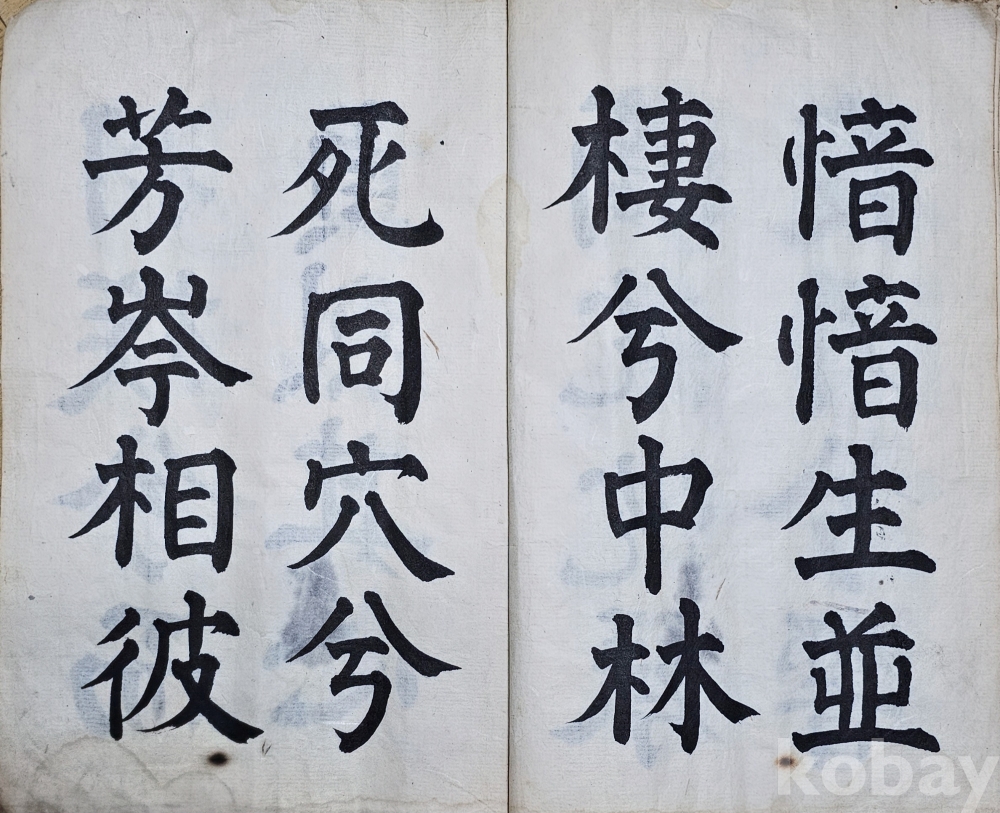 愔愔生並
棲兮中林
死同穴兮
芳岑相彼
kobay